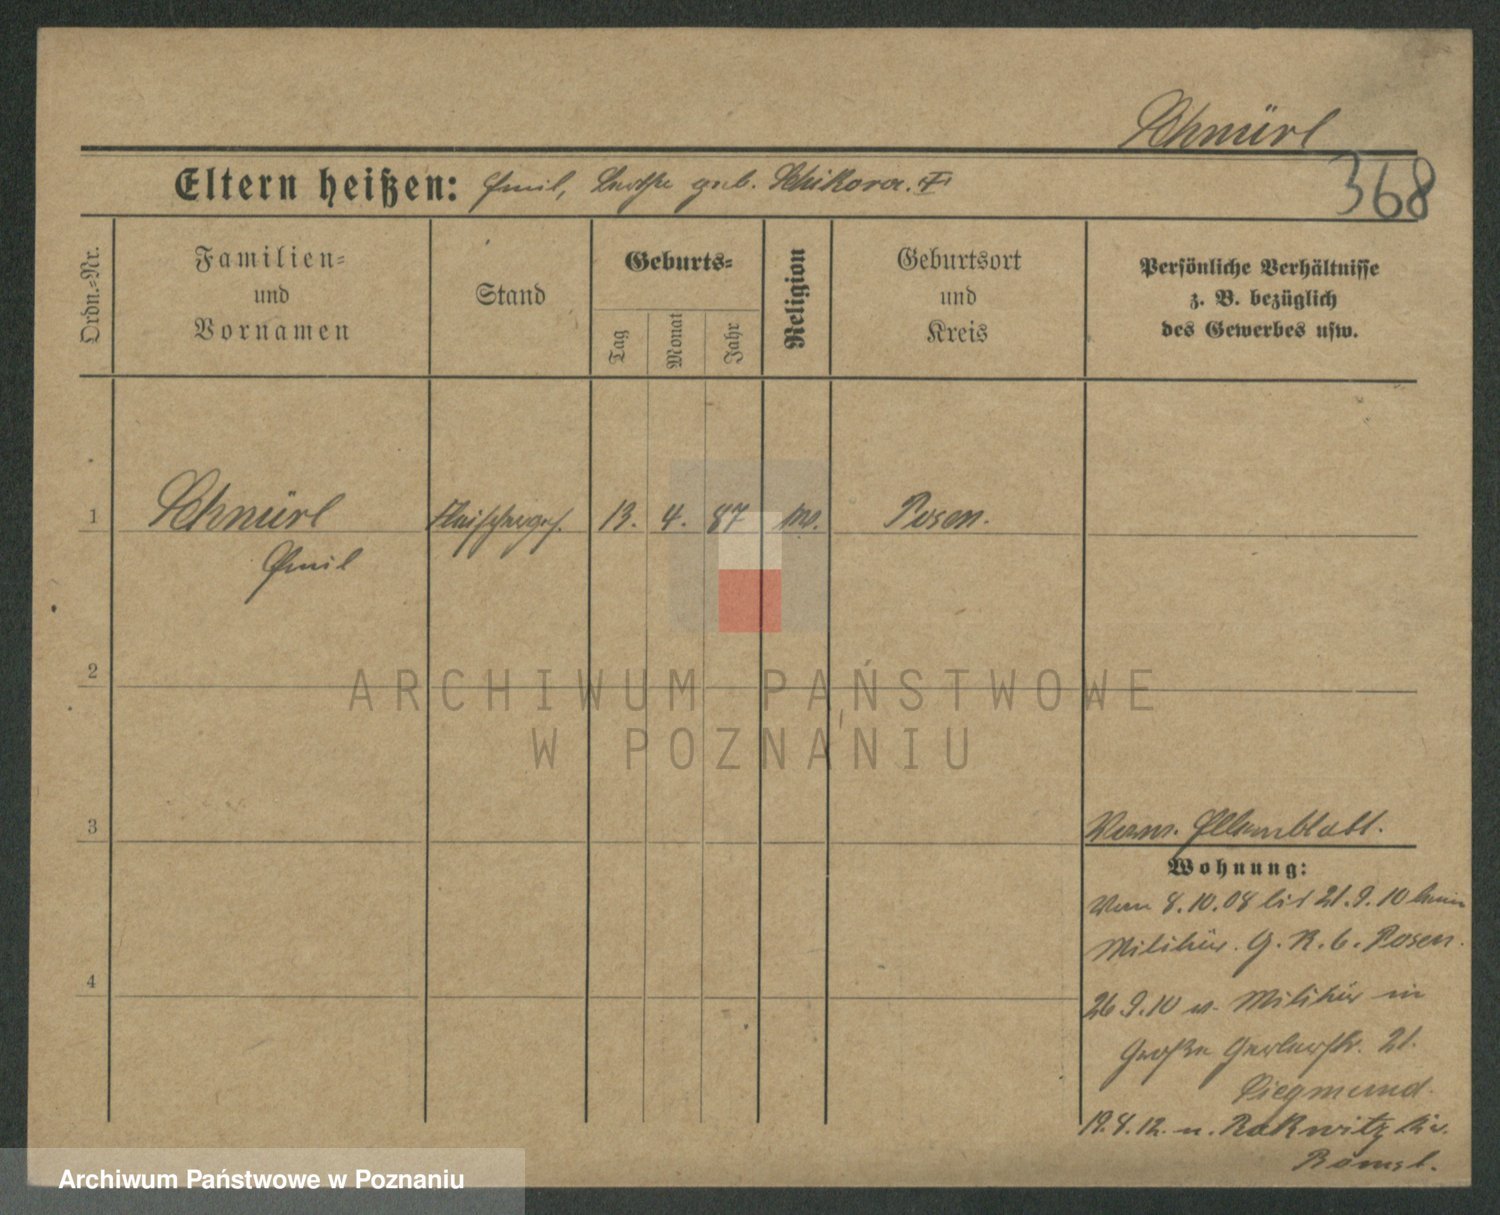 Schnürl
368
Eltern heißen: Emil, Luise geb. Schikora. †
Ordn.-Nr.
Familien-
und
Vornamen
Stand
Geburts-
Tag
Monat
Jahr
Religion
Geburtsort
und
Kreis
Persönliche Verhältnisse
z. B. bezüglich
des Gewerbes usw.
1 Schnürl Fleischerges. 13. 4. 87 Posen.
Emil
2
ARCHIWUM PAŃSTWOWE
W POZNANIU
3
Elternblatt.
Wohnung:
Vom 8.10.08 bis 21.9.10 beim
Militär. G. R. 6. Posen.
4
26.9.10 v. Militär in
Große Gerberstr. 21.
Siegmund.
19.8.12. n. Rakwitz
Bomst.
Archiwum Państwowe w Poznaniu